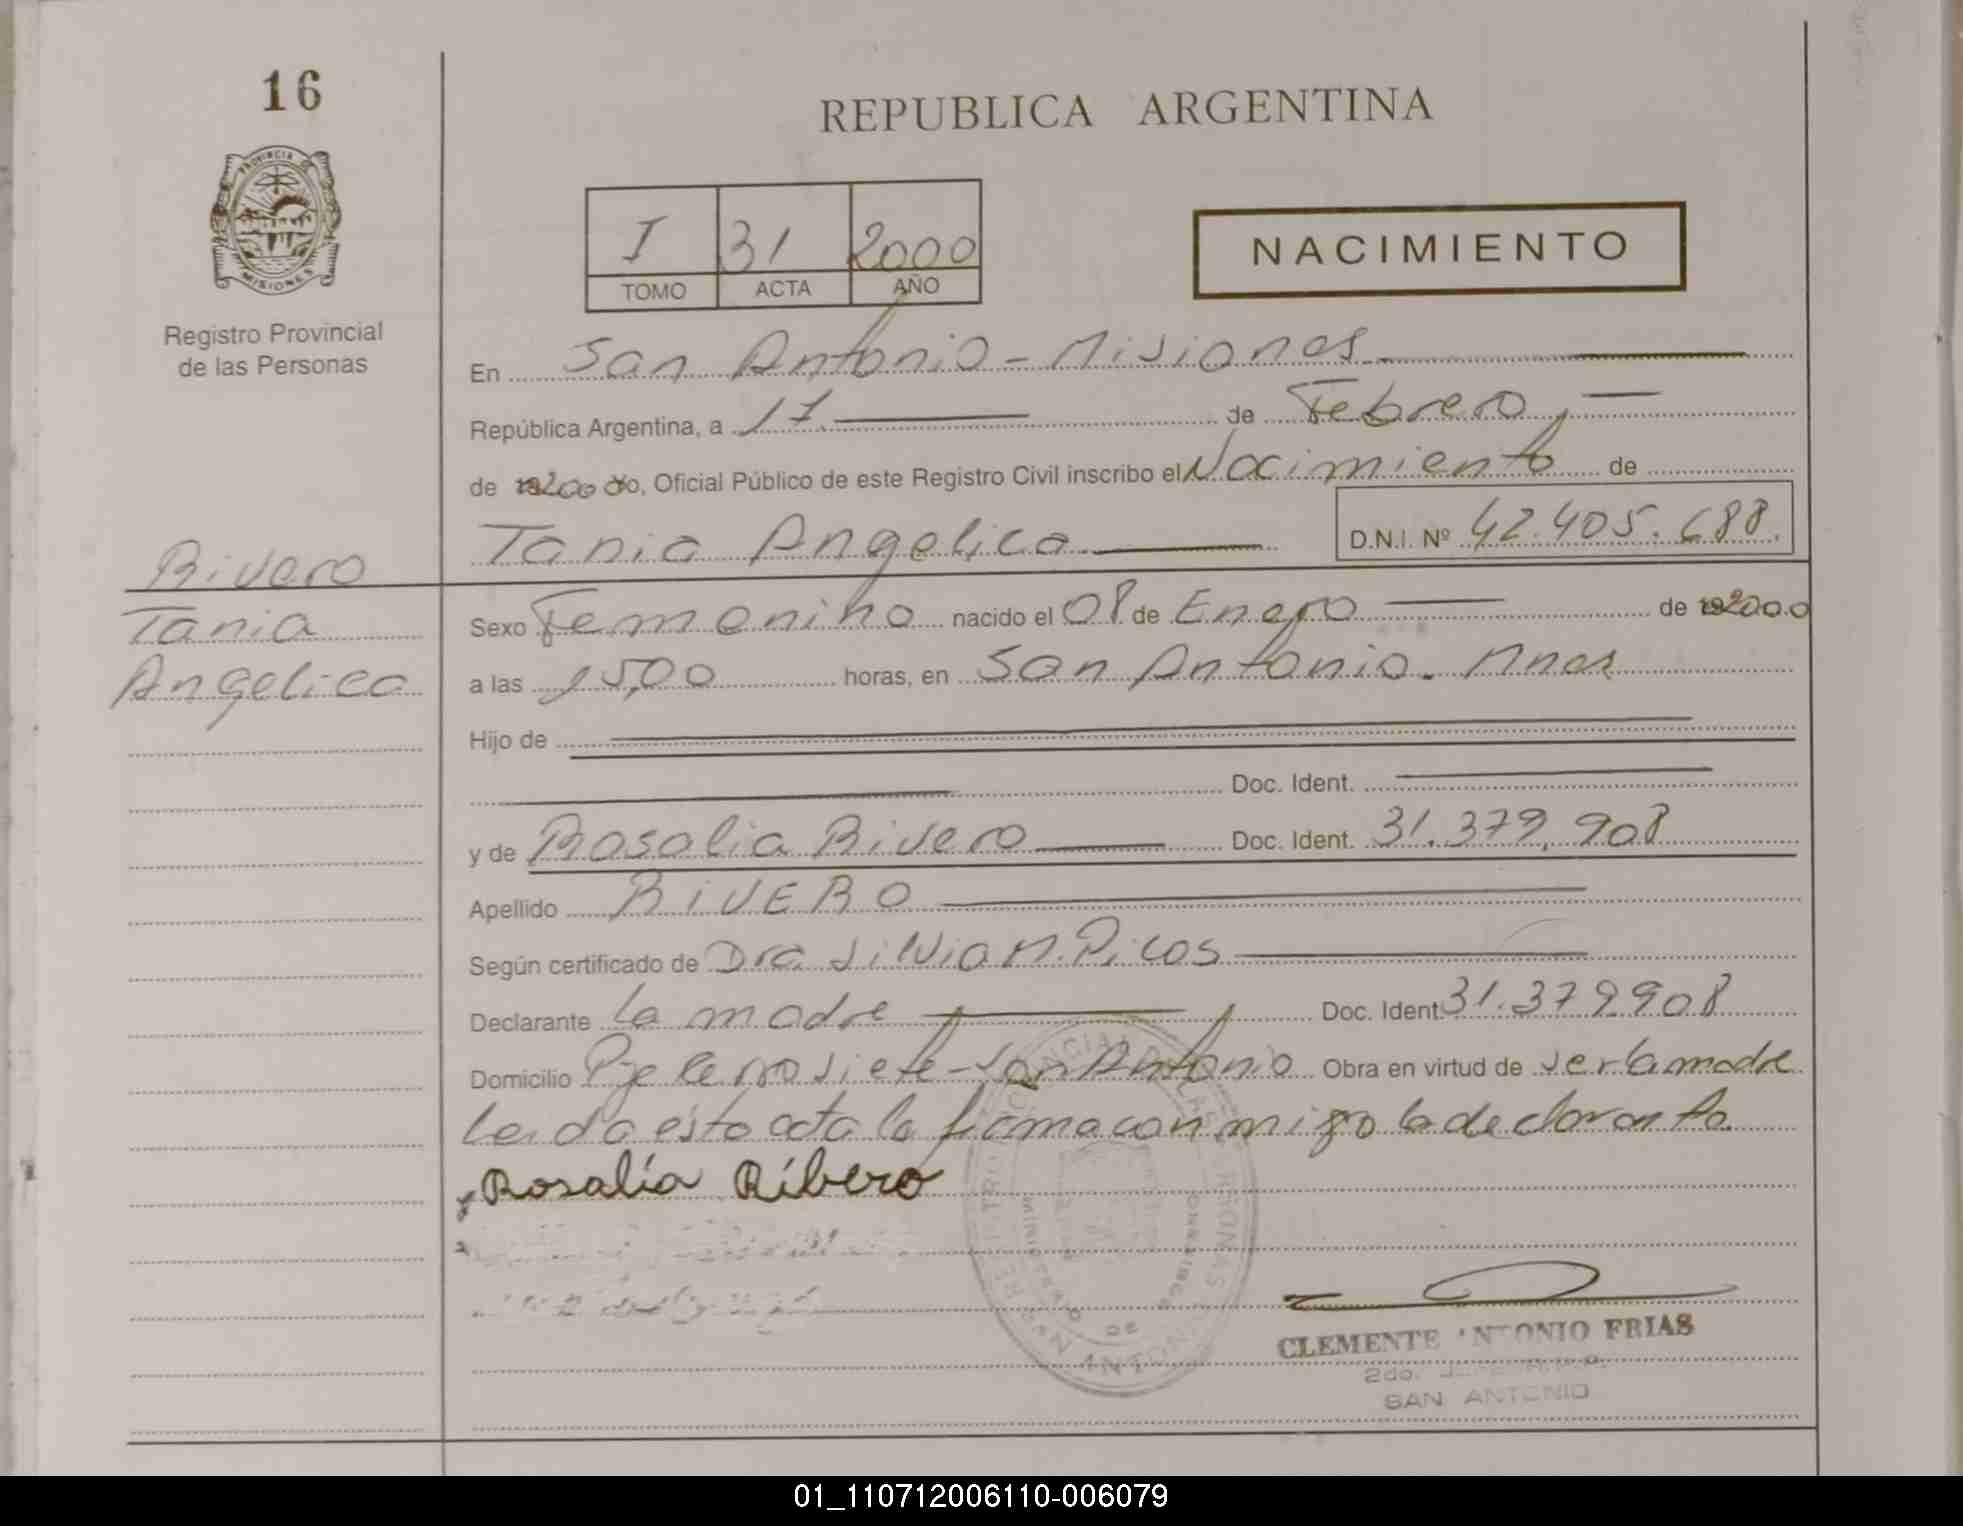 16
REPUBLICA ARGENTINA
PROVINCIA DE MISIONES
Registro Provincial
de las Personas
I 31 2000
TOMO ACTA AÑO
NACIMIENTO
En San Antonio - Misiones
República Argentina, a 17 de Febrero,
de 2000 Yo, Oficial Público de este Registro Civil inscribo el Nacimiento de
Tania Angelica D.N.I. Nº 42.405.688.
Rivero
Tania
Angelica
Sexo Femenino nacido el 08 de Enero de 2000
a las 15,00 horas, en San Antonio. Mnes
Hijo de
Doc. Ident.
y de Rosalia Rivero Doc. Ident. 31.379.908
Apellido RiVERO
Según certificado de Dra. Silvia N. Picos
Declarante La madre Doc. Ident 31.379908
Domicilio Pje siete - San Antonio Obra en virtud de ser la madre
Leida esta acta la firma conmigo la declarante.
Rosalía Ribero
CLEMENTE ANTONIO FRIAS
2do.
SAN ANTONIO
01_110712006110-006079